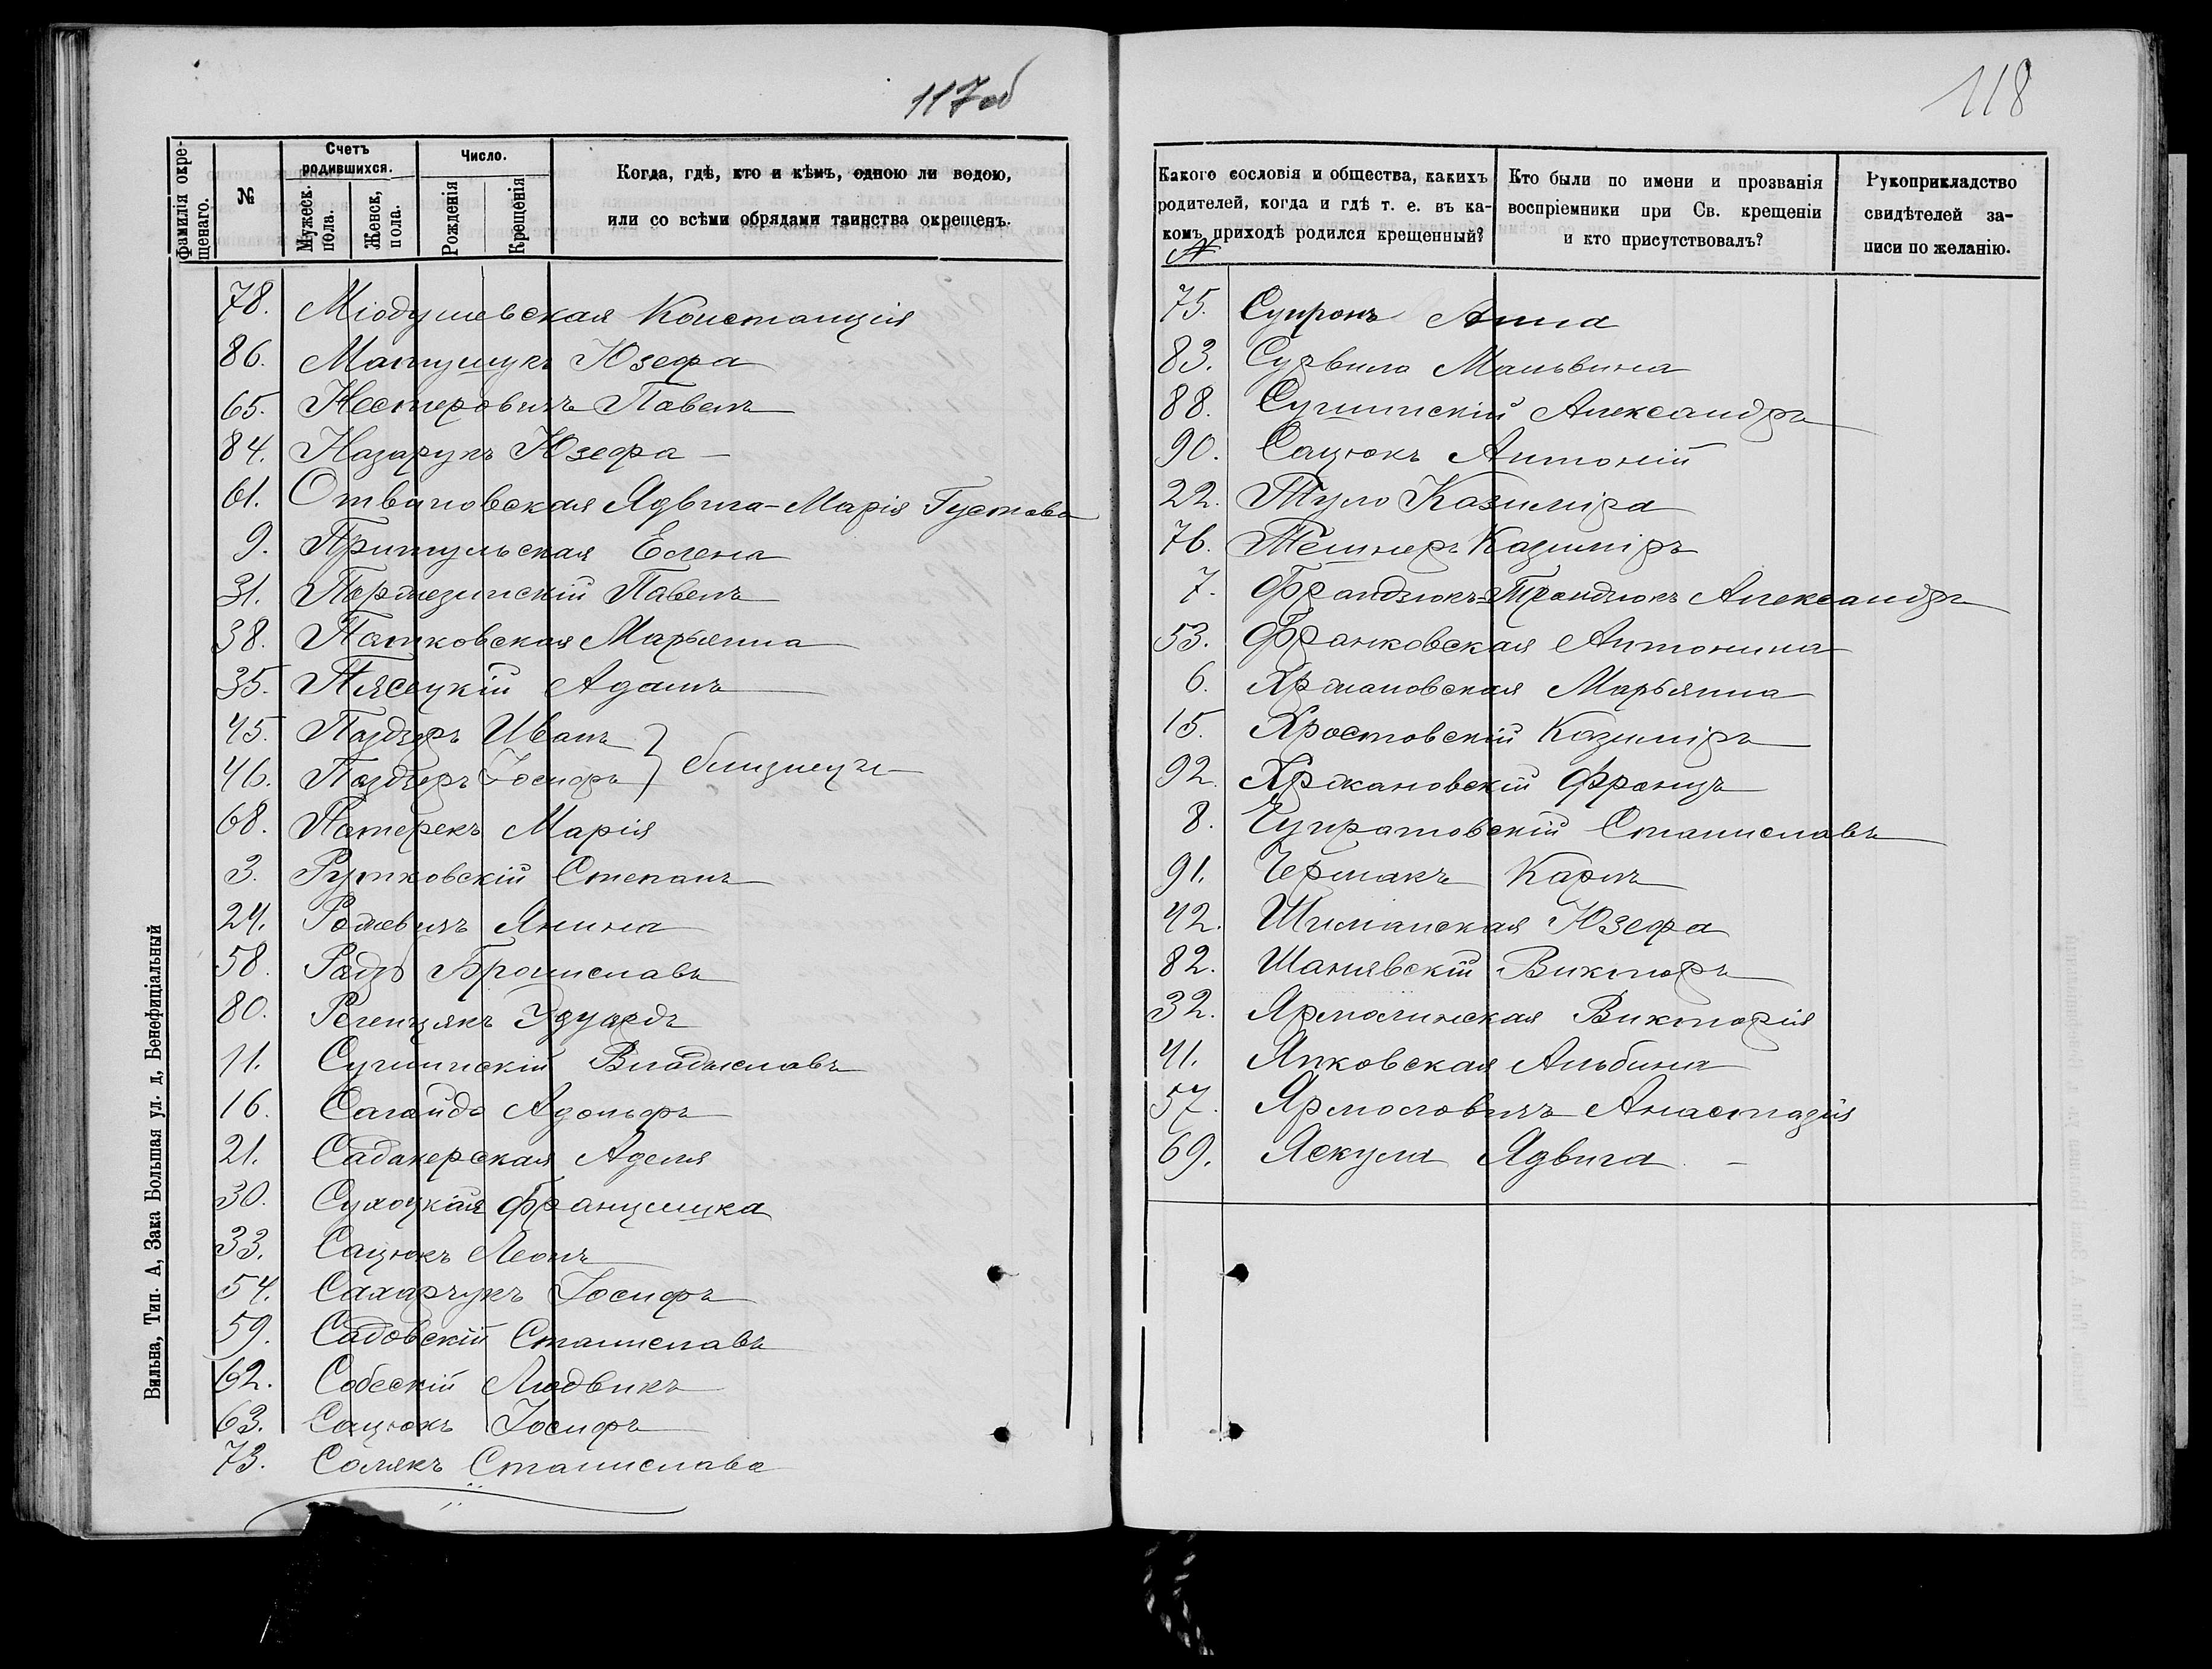 117 об
Фамилія окрещеннаго.
№
Счетъ родившихся.
Мужеск. пола.
Женск. пола.
Число.
Рожденія
Крещенія
Когда, гдѣ, кто и кѣмъ, одною ли водою,
или со всѣми обрядами таинства окрещенъ.
78. Міодушевская Констанція
86. Матушукъ Юзефа
65. Нестеровичъ Павелъ
84. Назарукъ Юзефа
61. Отвиновская Ядвига-Марія Густава
9. Притульская Елена
31. Павелъ
38. Патковская Марьянна
35. Пясецкій Адамъ
45. Паздзеръ Иванъ
46. Паздзеръ Іосифъ } близнецы
68. Патерекъ Марія
3. Рутковскій Степанъ
24. Рожевичъ Янина
58. Радзъ Брониславъ
80. Регенцякъ Эдуардъ
11. Сушинскій Владыславъ
16. Сагайдо Адольфъ
21. Садакерская Аделя
30. Сухоцкая Францишка
33. Сацюкъ Леонъ
54. Сахарчукъ Іосифъ
59. Садовскій Станиславъ
62. Собескій Людвикъ
63. Сацюкъ Іосифъ
73. Солякъ Станислава
Вильна, Тип. А, Зака Большая ул. д, Бенефиціальный
118
Какого сословія и общества, какихъ
родителей, когда и гдѣ т. е. въ ка-
комъ приходѣ родился крещенный?
Кто были по имени и прозванія
воспріемники при Св. крещеніи
и кто присутствовалъ?
Рукоприкладство
свидѣтелей за-
писи по желанію.
№
75. Супронъ Анна
83. Мальвина
88. Сушинскій Александръ
90. Сацюкъ Антоній
22. Казиміра
76. Казиміръ
7. Франдзюкъ-Трандзюкъ Александръ
53. Франковская Антонина
6. Хржановская Марьянна
15. Хростовскій Казиміръ
92. Хржановскій Францъ
8. Чупратовскій Станиславъ
91. Чермакъ Карлъ
42. Шиманская Юзефа
82. Шанявскій Викторъ
32. Ярмолинская Викторія
41. Янковская Альбина
57. Ярмоловичъ Анастазія
69. Яскула Ядвига